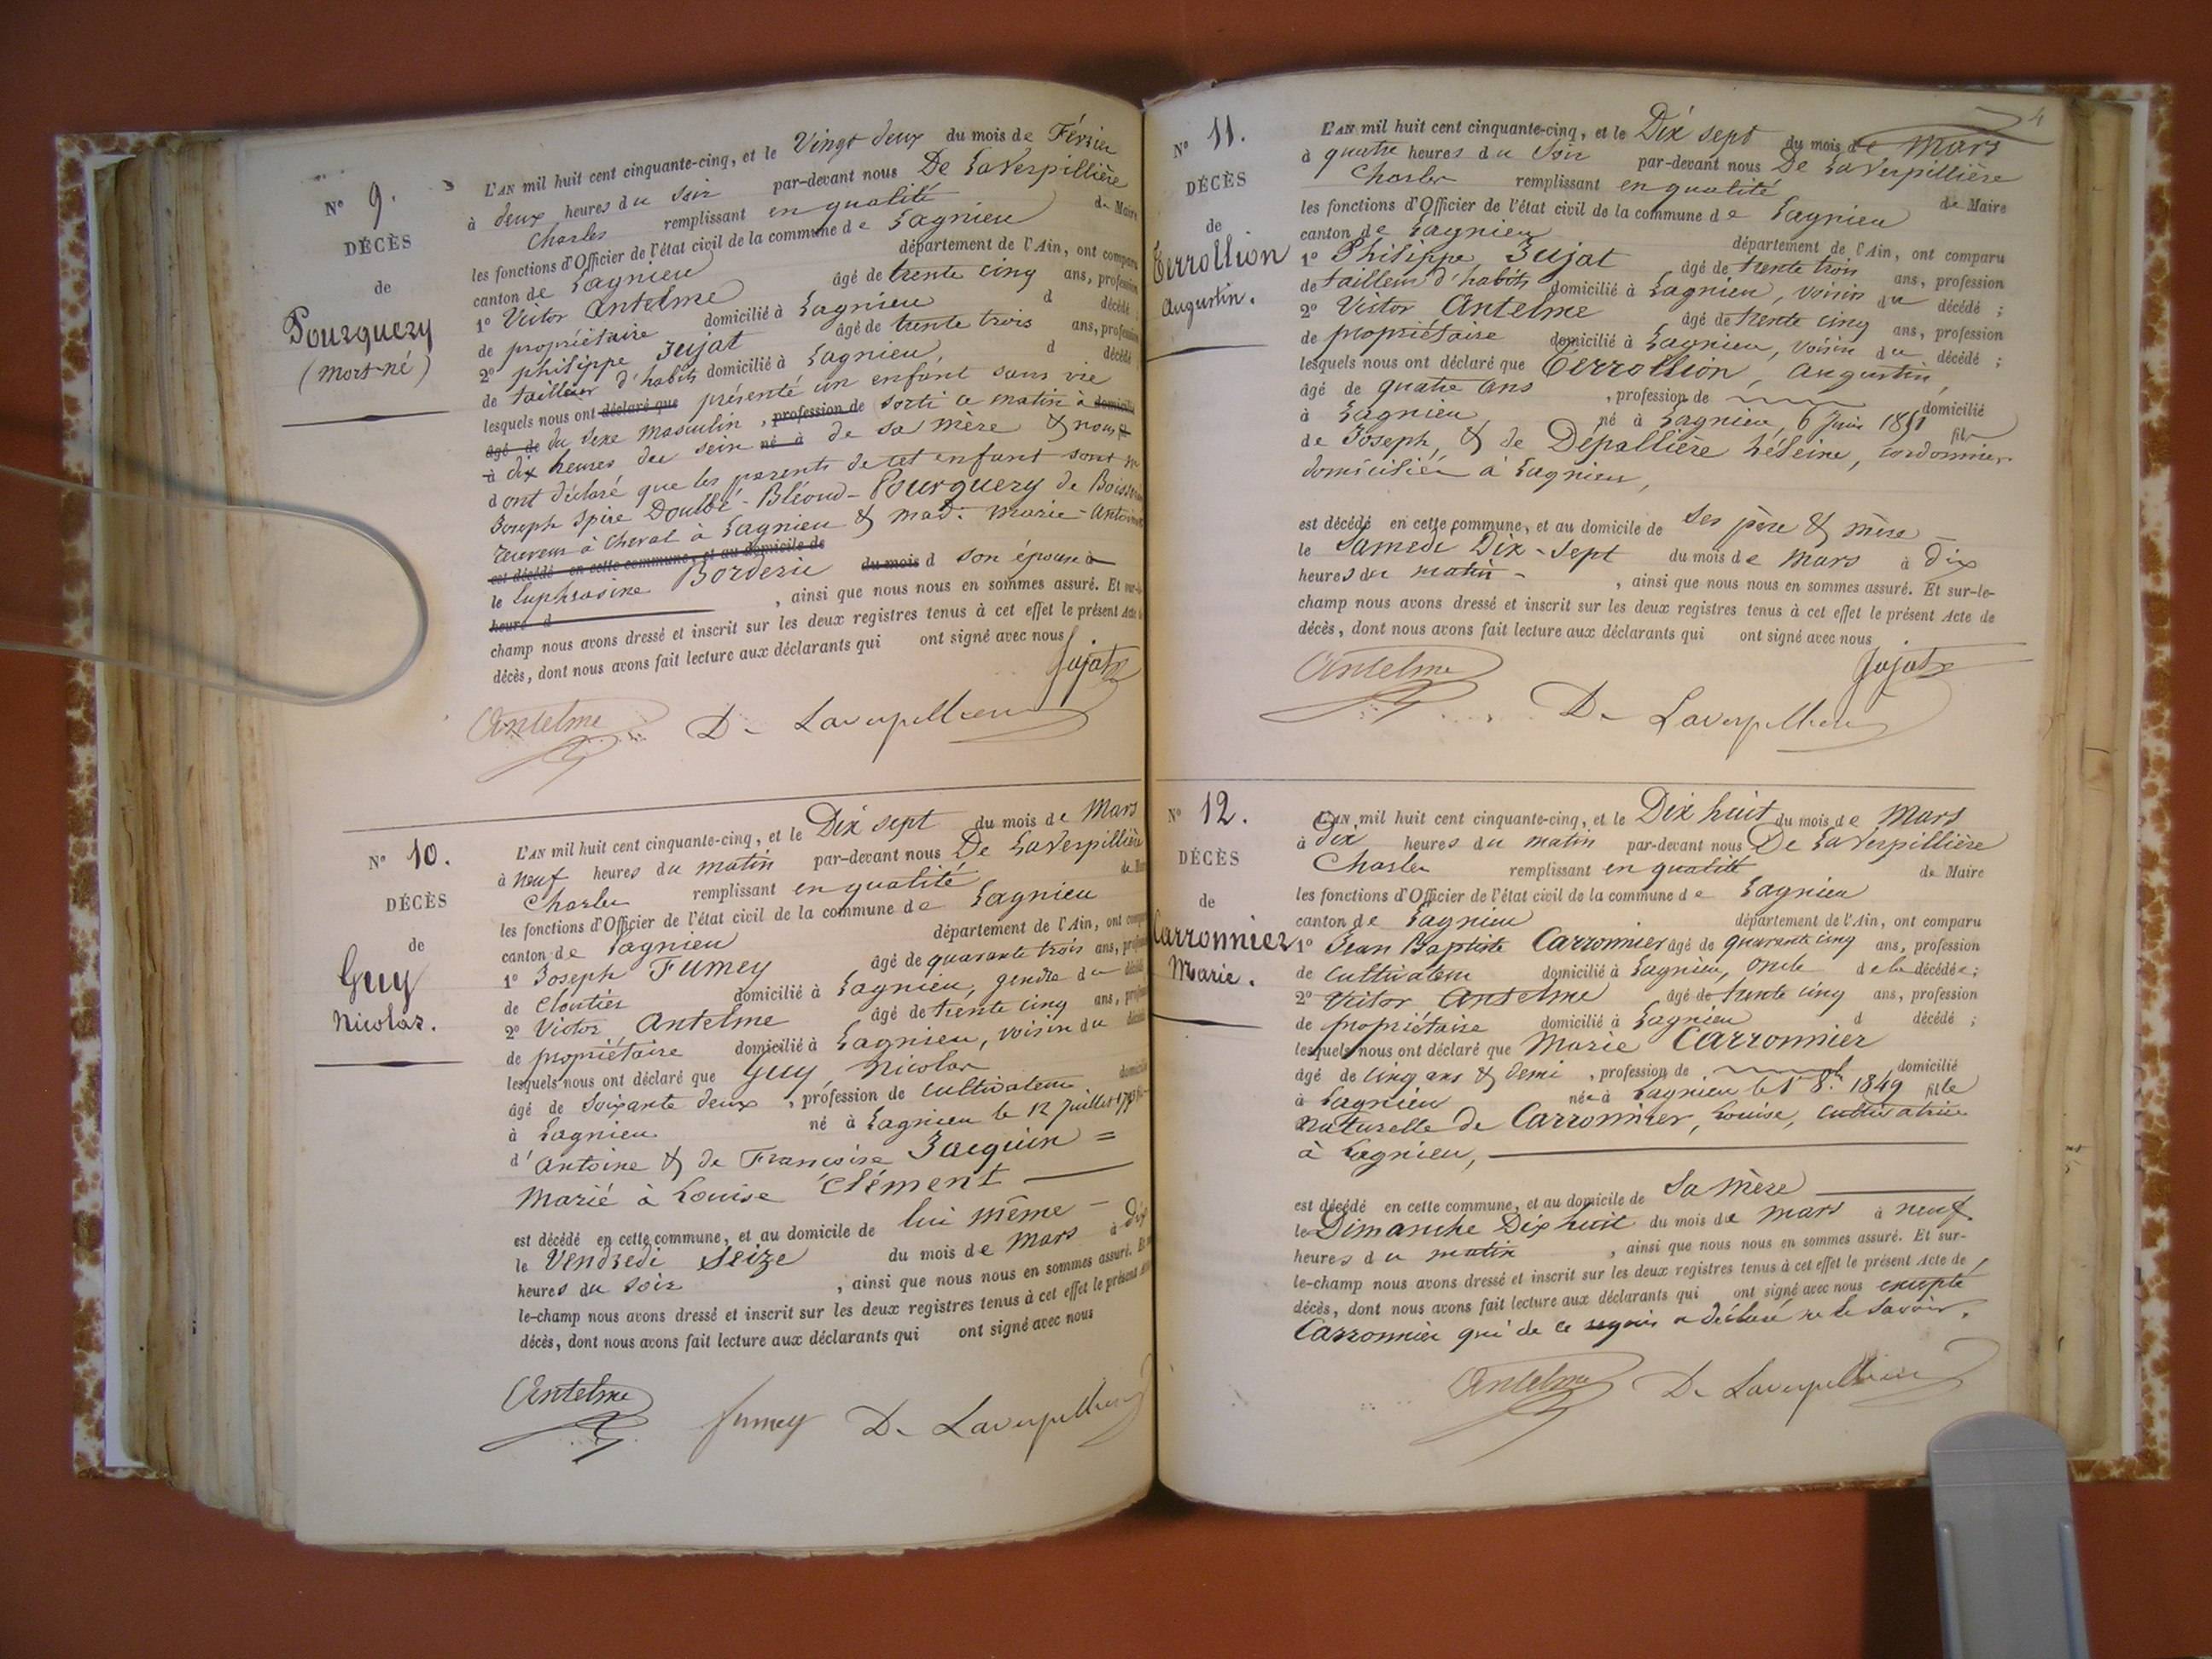 N° 9.
DÉCÈS
de
Pourquery
(mort-né)
L'AN mil huit cent cinquante-cinq, et le Vingt deux du mois de Février
à deux heures du soir par-devant nous De LaVerpillière
Charles remplissant en qualité de Maire
les fonctions d'Officier de l'état civil de la commune de Lagnieu
canton de Lagnieu département de l'Ain, ont comparu
1° Victor Antelme âgé de trente cinq ans, profession
de propriétaire domicilié à Lagnieu d décédé
2° philippe Jujat âgé de trente trois ans, profession
de tailleur d'habits domicilié à Lagnieu, d décédé
lesquels nous ont déclaré que présenté un enfant sans vie
âgé de du sexe masculin, profession de sorti ce matin à
à dix heures du sein né à de sa mère & nous
d ont déclaré que les parents de cet enfant sont
Joseph Spire Doulbé-Bléoud-Pourquery de
receveur à cheval à Lagnieu & mad. marie-
est décédé en cette commune, et au domicile de
le Euphrosine Borderie du mois d son épouse à
heure d , ainsi que nous nous en sommes assuré. Et sur-le-
champ nous avons dressé et inscrit sur les deux registres tenus à cet effet le présent Acte de
décès, dont nous avons fait lecture aux déclarants qui ont signé avec nous
Jujat
Antelme De Laverpilliere
N° 10.
DÉCÈS
de
Guy
Nicolas.
L'AN mil huit cent cinquante-cinq, et le Dix sept du mois de Mars
à neuf heures du matin par-devant nous De LaVerpillière
Charles remplissant en qualité de
les fonctions d'Officier de l'état civil de la commune de Lagnieu
canton de Lagnieu département de l'Ain, ont
1° Joseph Fumey âgé de quarante trois ans,
de Cloutier domicilié à Lagnieu, gendre du
2° Victor Antelme âgé de trente cinq ans,
de propriétaire domicilié à Lagnieu, voisin du
lesquels nous ont déclaré que Guy Nicolas
âgé de soixante deux, profession de cultivateur.
à Lagnieu né à Lagnieu le 12 Juillet
d'Antoine & de Françoise Jacquin =
Marié à Louise Clément
est décédé en cette commune, et au domicile de lui même
le Vendredi Seize du mois de Mars à Dix
heures du soir , ainsi que nous nous en sommes assuré.
le-champ nous avons dressé et inscrit sur les deux registres tenus à cet effet le présent
décès, dont nous avons fait lecture aux déclarants qui ont signé avec nous
Antelme fumey De Laverpilliere
4
N° 11.
DÉCÈS
de
Terrollion
Augustin.
L'AN mil huit cent cinquante-cinq, et le Dix sept du mois de Mars
à quatre heures du Soir par-devant nous De LaVerpillière
Charles remplissant en qualité de Maire
les fonctions d'Officier de l'état civil de la commune de Lagnieu
canton de Lagnieu département de l'Ain, ont comparu
1° Philippe Jujat âgé de trente trois ans, profession
de tailleur d'habits domicilié à Lagnieu, voisin du décédé;
2° Victor Antelme âgé de trente cinq ans, profession
de propriétaire domicilié à Lagnieu, voisin du décédé;
lesquels nous ont déclaré que Terrollion, Augustin,
âgé de quatre ans , profession de domicilié
à Lagnieu né à Lagnieu, 6 Juin 1851 fils
de Joseph, & de Dépallière héleine, cordonnier
domiciliés à Lagnieu,
est décédé en cette commune, et au domicile de Ses père & mère
le Samedi Dix-sept du mois de mars à Dix
heures du matin , ainsi que nous nous en sommes assuré. Et sur-le-
champ nous avons dressé et inscrit sur les deux registres tenus à cet effet le présent Acte de
décès, dont nous avons fait lecture aux déclarants qui ont signé avec nous
Antelme Jujat
De Laverpilliere
N° 12.
DÉCÈS
de
Carronnier
Marie.
L'AN mil huit cent cinquante-cinq, et le Dix huit du mois de Mars
à Dix heures du matin par-devant nous De LaVerpillière
Charles remplissant en qualité de Maire
les fonctions d'Officier de l'état civil de la commune de Lagnieu
canton de Lagnieu département de l'Ain, ont comparu
1° Jean Baptiste Carronnier âgé de quarante cinq ans, profession
de cultivateur domicilié à Lagnieu, oncle de la décédée;
2° Victor Antelme âgé de trente cinq ans, profession
de propriétaire domicilié à Lagnieu d décédé;
lesquels nous ont déclaré que Marie Carronnier
âgé de cinq ans & demi , profession de domicilié
à Lagnieu née à Lagnieu le 1er 8bre 1849 fille
naturelle de Carronnier, Louise, cultivatrice
à Lagnieu,
est décédé en cette commune, et au domicile de Sa Mère
le Dimanche Dix huit du mois de mars à neuf
heures du matin , ainsi que nous nous en sommes assuré. Et sur-
le-champ nous avons dressé et inscrit sur les deux registres tenus à cet effet le présent Acte de
décès, dont nous avons fait lecture aux déclarants qui ont signé avec nous excepté
Carronnier qui de ce requis a déclaré ne le savoir.
Antelme De Laverpilliere